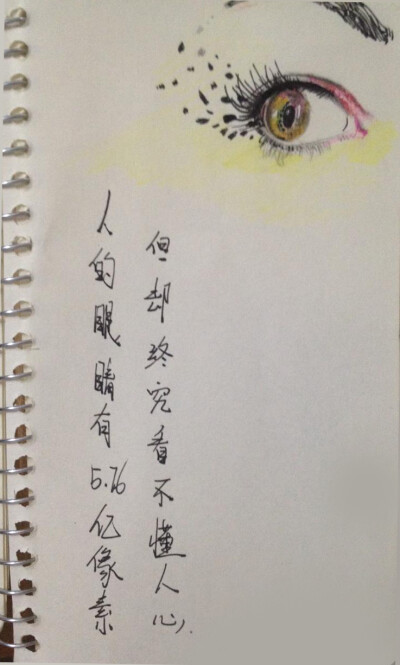 人的眼睛有5.76亿像素
但却终究看不懂人心.